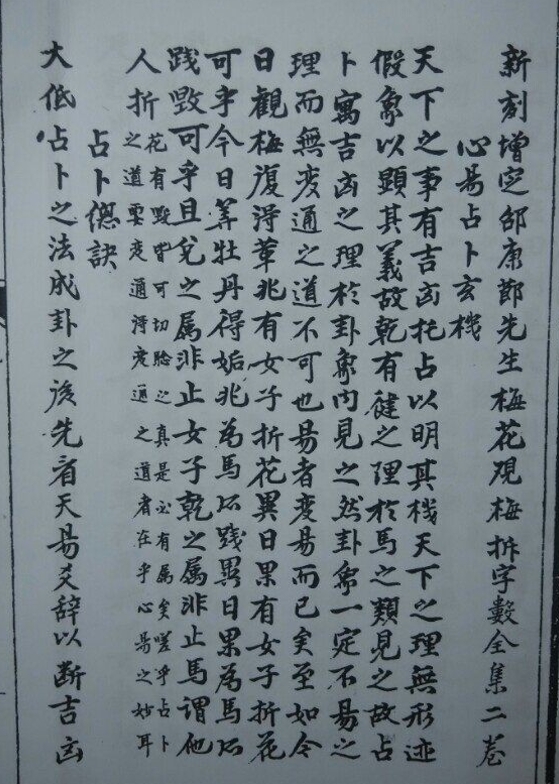 新刻增定邵康節先生梅花观梅拆字數全集二卷
心易占卜玄機
天下之事有吉凶托占以明其機天下之理無形迹
假象以顕其義故乾有健之理於馬之類見之故占
卜寓吉凶之理於卦象内見之然卦象一定不易之
理而無变通之道不可也易者变易而已矣至如今
日觀梅復得革兆有女子折花異日果有女子折花
可乎今日筭牡丹得姤兆為馬所踐異日果為馬所
踐毁可乎且兌之属非止女子乾之属非止馬謂他
人折花有毀皆可切驗之真是必有属矣嗟乎占卜
之道要变通得变通之道者在乎心易之妙耳
占卜總訣
大低占卜之法成卦之後先看天易爻辞以断吉凶